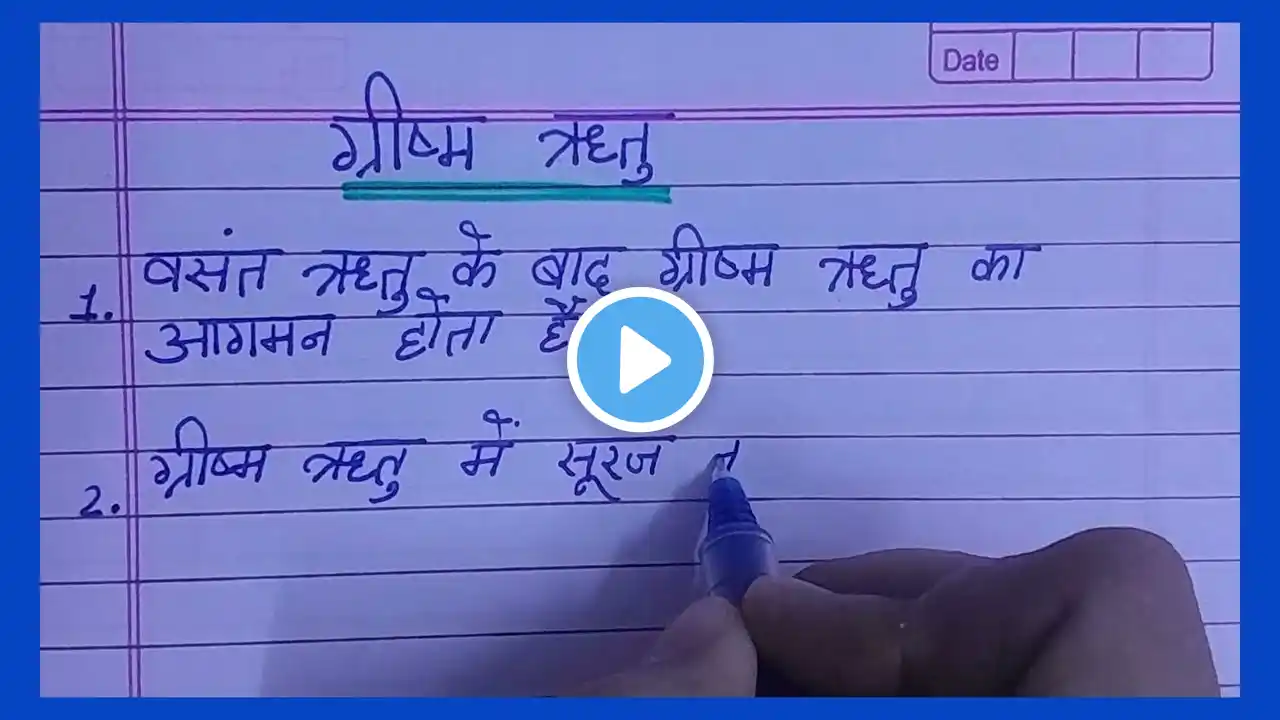 Date
ग्रीष्म ऋतु
1. वसंत ऋतु के बाद ग्रीष्म ऋतु का
आगमन होता है
2. ग्रीष्म ऋतु में सूरज